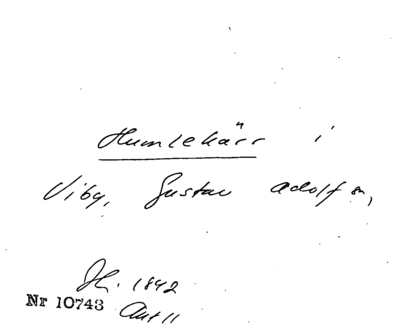 Humlekärr i
Viby, Gustav Adolf sn,
Hr. 1842
Nr 10743 Akt 11